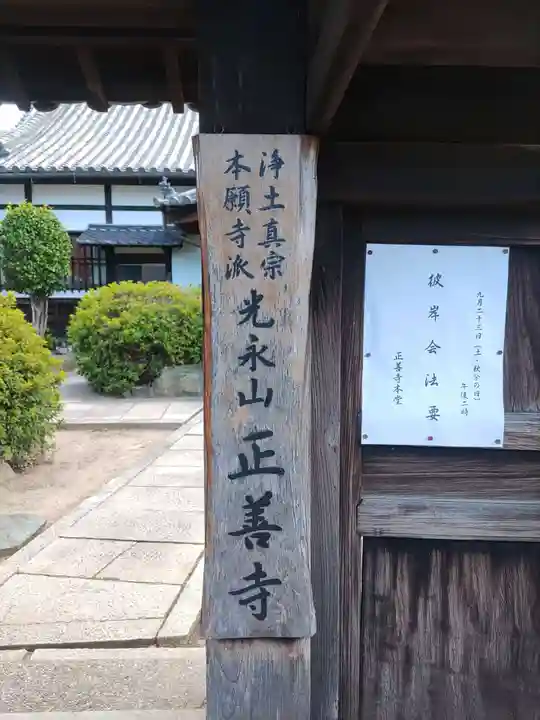 浄土真宗
本願寺派
光永山
正善寺
彼岸会法要
九月二十三日（土・秋分の日）
午後二時
正善寺本堂